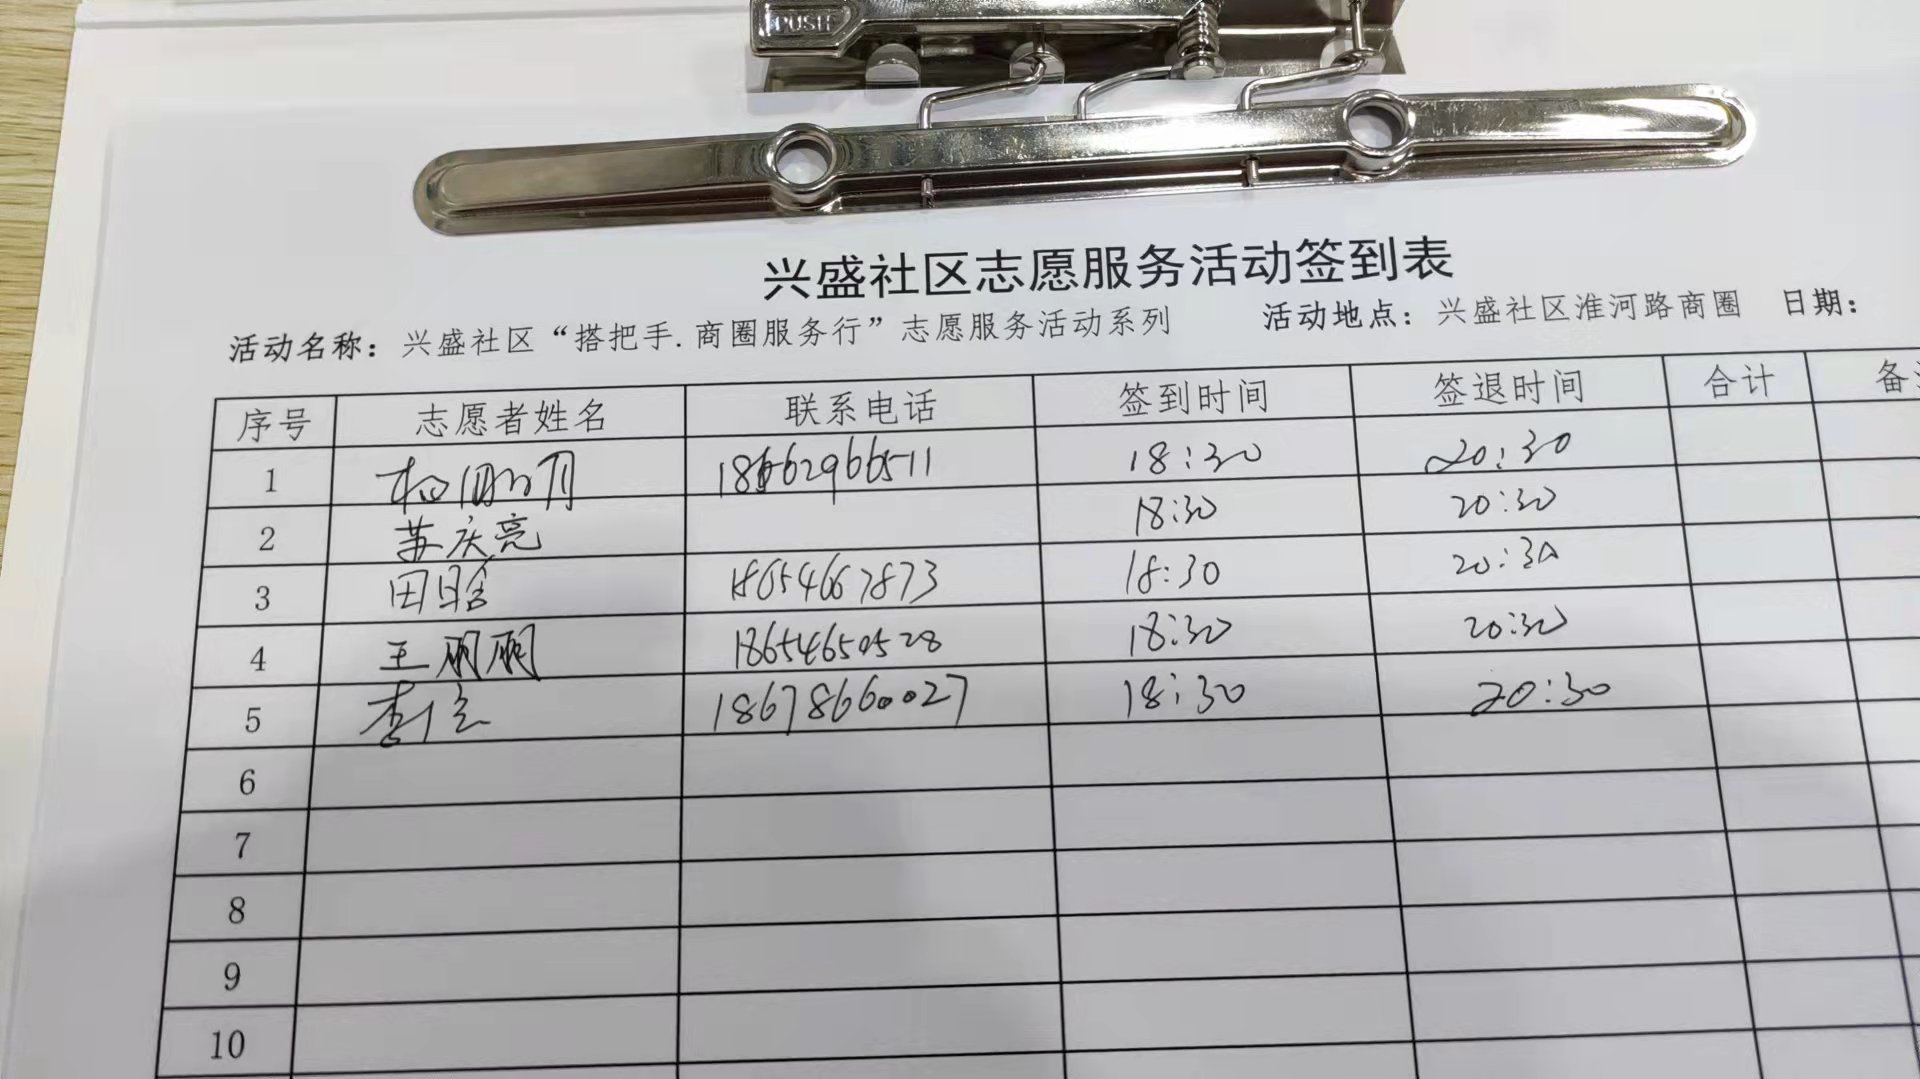 PUSH
兴盛社区志愿服务活动签到表
活动名称：兴盛社区“搭把手.商圈服务行”志愿服务活动系列 活动地点：兴盛社区淮河路商圈 日期：
序号 志愿者姓名 联系电话 签到时间 签退时间 合计 备
1 18662966511 18:30 20:30
2 苏庆亮 18:30 20:30
3 田晗 18654667873 18:30 20:30
4 王丽丽 18654650528 18:30 20:30
5 李 18678660027 18:30 20:30
6
7
8
9
10